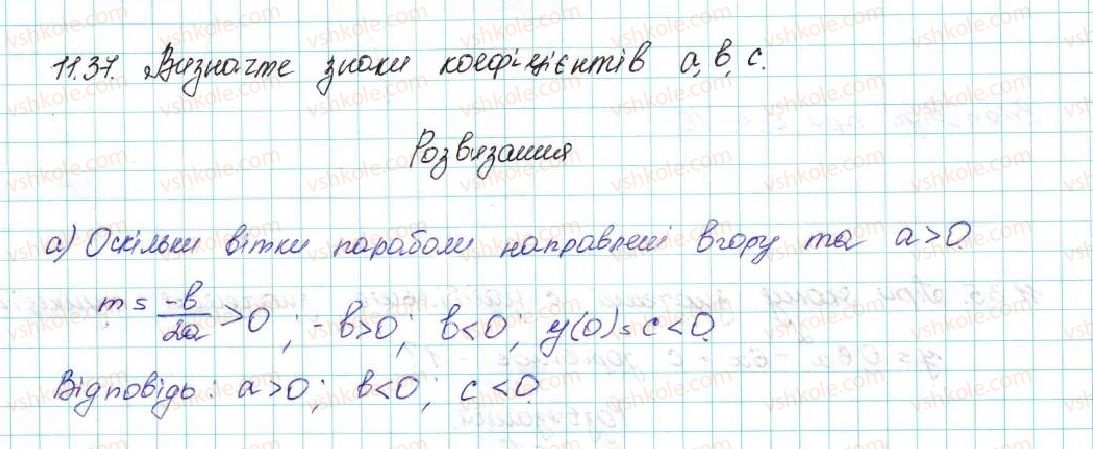 11.37. Визначте знаки коефіцієнтів a, b, c.
Розв'язання
а) Оскільки вітки параболи направлені вгору та a>0.
m = -b/2a >0; -b>0; b<0; y(0) = c<0.
Відповідь: a>0; b<0; c<0.